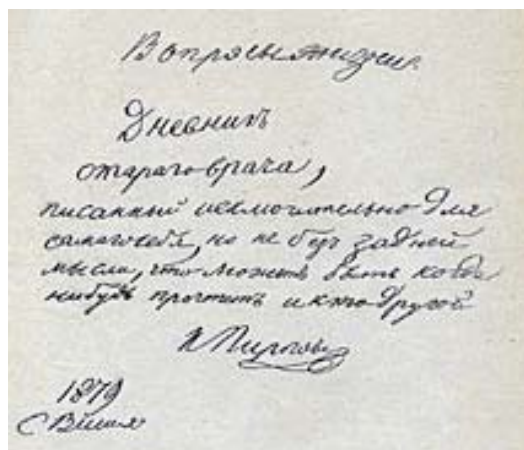 Вопросы жизни.
Дневникъ
стараго врача,
писанный исключительно для
самого себя, но не безъ задней
мысли, что можетъ быть когда
нибудь прочтетъ и кто другой
Н Пироговъ
1879
С Вишня